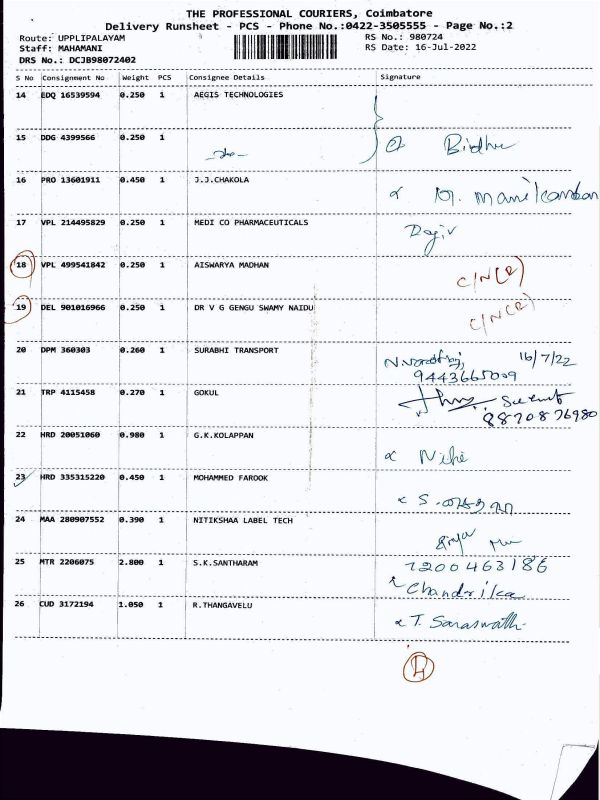 THE PROFESSIONAL COURIERS, Coimbatore
Delivery Runsheet - PCS - Phone No.:0422-3505555 - Page No.:2
Route: UPPLIPALAYAM RS No.: 980724
Staff: MAHAMANI RS Date: 16-Jul-2022
DRS No.: DCJB98072402
S No Consignment No Weight PCS Consignee Details Signature
14 EDQ 16539594 0.250 1 AEGIS TECHNOLOGIES
15 DDG 4399566 0.250 1
-do-
16 PRO 13601911 0.450 1 J.J.CHAKOLA
17 VPL 214495829 0.250 1 MEDI CO PHARMACEUTICALS
18 VPL 499541842 0.250 1 AISWARYA MADHAN
C/N(R)
19 DEL 901016966 0.250 1 DR V G GENGU SWAMY NAIDU
C/N(R)
20 DPM 360303 0.260 1 SURABHI TRANSPORT
16/7/22
9443665009
21 TRP 4115458 0.270 1 GOKUL
8870876980
22 HRD 20051060 0.980 1 G.K.KOLAPPAN
23 HRD 335315220 0.450 1 MOHAMMED FAROOK
24 MAA 280907552 0.390 1 NITIKSHAA LABEL TECH
25 MTR 2206075 2.800 1 S.K.SANTHARAM
7200463186
Chandrika
26 CUD 3172194 1.050 1 R.THANGAVELU
T. Saraswathi